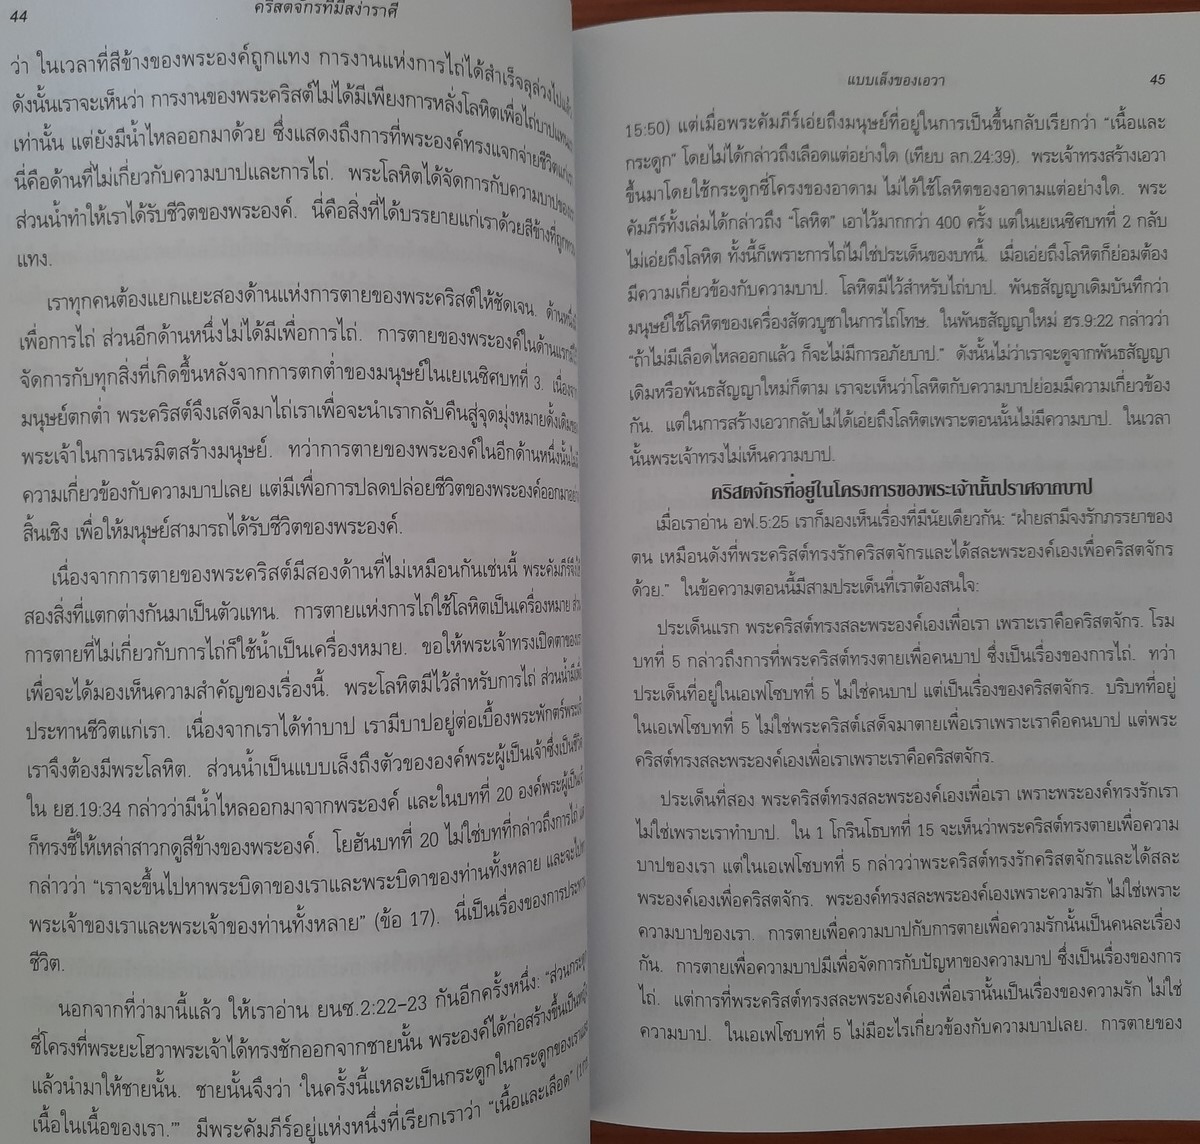 44
คริสตจักรที่มีสง่าราศี
ว่า ในเวลาที่สีข้างของพระองค์ถูกแทง การงานแห่งการไถ่ได้สำเร็จลุล่วงไปแล้ว
ดังนั้นเราจะเห็นว่า การงานของพระคริสต์ไม่ได้มีเพียงการหลั่งโลหิตเพื่อไถ่บาปแทนเรา
เท่านั้น แต่ยังมีน้ำไหลออกมาด้วย ซึ่งแสดงถึงการที่พระองค์ทรงแจกจ่ายชีวิตแก่เรา
นี่คือด้านที่ไม่เกี่ยวกับความบาปและการไถ่. พระโลหิตได้จัดการกับความบาปของเรา
ส่วนน้ำทำให้เราได้รับชีวิตของพระองค์. นี่คือสิ่งที่ได้บรรยายแก่เราด้วยสีข้างที่ถูก
แทง.
เราทุกคนต้องแยกแยะสองด้านแห่งการตายของพระคริสต์ให้ชัดเจน. ด้านหนึ่งมี
เพื่อการไถ่ ส่วนอีกด้านหนึ่งไม่ได้มีเพื่อการไถ่. การตายของพระองค์ในด้านแรก
จัดการกับทุกสิ่งที่เกิดขึ้นหลังจากการตกต่ำของมนุษย์ในเยเนซิศบทที่ 3. เนื่องจาก
มนุษย์ตกต่ำ พระคริสต์จึงเสด็จมาไถ่เราเพื่อจะนำเรากลับคืนสู่จุดมุ่งหมายดั้งเดิมของ
พระเจ้าในการเนรมิตสร้างมนุษย์. ทว่าการตายของพระองค์ในอีกด้านหนึ่งนั้น
ความเกี่ยวข้องกับความบาปเลย แต่มีเพื่อการปลดปล่อยชีวิตของพระองค์ออกมาอย่าง
สิ้นเชิง เพื่อให้มนุษย์สามารถได้รับชีวิตของพระองค์.
เนื่องจากการตายของพระคริสต์มีสองด้านที่ไม่เหมือนกันเช่นนี้ พระคัมภีร์จึงใช้
สองสิ่งที่แตกต่างกันมาเป็นตัวแทน. การตายแห่งการไถ่ใช้โลหิตเป็นเครื่องหมาย ส่วน
การตายที่ไม่เกี่ยวกับการไถ่ก็ใช้น้ำเป็นเครื่องหมาย. ขอให้พระเจ้าทรงเปิดตาของเรา
เพื่อจะได้มองเห็นความสำคัญของเรื่องนี้. พระโลหิตมีไว้สำหรับการไถ่ ส่วนน้ำมีเพื่อ
ประทานชีวิตแก่เรา. เนื่องจากเราได้ทำบาป เรามีบาปอยู่ต่อเบื้องพระพักตร์พระเจ้า
เราจึงต้องมีพระโลหิต. ส่วนน้ำเป็นแบบเล็งถึงตัวขององค์พระผู้เป็นเจ้าซึ่งเป็นชีวิต
ใน ยฮ.19:34 กล่าวว่ามีน้ำไหลออกมาจากพระองค์ และในบทที่ 20 องค์พระผู้เป็นเจ้า
ก็ทรงชี้ให้เหล่าสาวกดูสีข้างของพระองค์. โยฮันบทที่ 20 ไม่ใช่บทที่กล่าวถึงการไถ่
กล่าวว่า “เราจะขึ้นไปหาพระบิดาของเราและพระบิดาของท่านทั้งหลาย และจะไปหา
พระเจ้าของเราและพระเจ้าของท่านทั้งหลาย” (ข้อ 17). นี่เป็นเรื่องของการประทาน
ชีวิต.
นอกจากที่ว่ามานี้แล้ว ให้เราอ่าน ยนซ.2:22–23 กันอีกครั้งหนึ่ง: “ส่วนกระดูก
ซี่โครงที่พระยะโฮวาพระเจ้าได้ทรงชักออกจากชายนั้น พระองค์ได้ก่อสร้างขึ้นเป็นหญิง
แล้วนำมาให้ชายนั้น. ชายนั้นจึงว่า ‘ในครั้งนี้แหละเป็นกระดูกในกระดูกของเราและ
เนื้อในเนื้อของเรา.’” มีพระคัมภีร์อยู่แห่งหนึ่งที่เรียกเราว่า “เนื้อและเลือด”
แบบเล็งของเอวา
45
15:50) แต่เมื่อพระคัมภีร์เอ่ยถึงมนุษย์ที่อยู่ในการเป็นขึ้นกลับเรียกว่า “เนื้อและ
กระดูก” โดยไม่ได้กล่าวถึงเลือดแต่อย่างใด (เทียบ ลก.24:39). พระเจ้าทรงสร้างเอวา
ขึ้นมาโดยใช้กระดูกซี่โครงของอาดาม ไม่ได้ใช้โลหิตของอาดามแต่อย่างใด. พระ
คัมภีร์ทั้งเล่มได้กล่าวถึง “โลหิต” เอาไว้มากกว่า 400 ครั้ง แต่ในเยเนซิศบทที่ 2 กลับ
ไม่เอ่ยถึงโลหิต ทั้งนี้ก็เพราะการไถ่ไม่ใช่ประเด็นของบทนี้. เมื่อเอ่ยถึงโลหิตก็ย่อมต้อง
มีความเกี่ยวข้องกับความบาป. โลหิตมีไว้สำหรับไถ่บาป. พันธสัญญาเดิมบันทึกว่า
มนุษย์ใช้โลหิตของเครื่องสัตวบูชาในการไถ่โทษ. ในพันธสัญญาใหม่ ฮร.9:22 กล่าวว่า
“ถ้าไม่มีเลือดไหลออกแล้ว ก็จะไม่มีการอภัยบาป.” ดังนั้นไม่ว่าเราจะดูจากพันธสัญญา
เดิมหรือพันธสัญญาใหม่ก็ตาม เราจะเห็นว่าโลหิตกับความบาปย่อมมีความเกี่ยวข้อง
กัน. แต่ในการสร้างเอวากลับไม่ได้เอ่ยถึงโลหิตเพราะตอนนั้นไม่มีความบาป. ในเวลา
นั้นพระเจ้าทรงไม่เห็นความบาป.
คริสตจักรที่อยู่ในโครงการของพระเจ้านั้นปราศจากบาป
เมื่อเราอ่าน อฟ.5:25 เราก็มองเห็นเรื่องที่มีนัยเดียวกัน: “ฝ่ายสามีจงรักภรรยาของ
ตน เหมือนดังที่พระคริสต์ทรงรักคริสตจักรและได้สละพระองค์เองเพื่อคริสตจักร
ด้วย.” ในข้อความตอนนี้มีสามประเด็นที่เราต้องสนใจ:
ประเด็นแรก พระคริสต์ทรงสละพระองค์เองเพื่อเรา เพราะเราคือคริสตจักร. โรม
บทที่ 5 กล่าวถึงการที่พระคริสต์ทรงตายเพื่อคนบาป ซึ่งเป็นเรื่องของการไถ่. ทว่า
ประเด็นที่อยู่ในเอเฟโซบทที่ 5 ไม่ใช่คนบาป แต่เป็นเรื่องของคริสตจักร. บริบทที่อยู่
ในเอเฟโซบทที่ 5 ไม่ใช่พระคริสต์เสด็จมาตายเพื่อเราเพราะเราคือคนบาป แต่พระ
คริสต์ทรงสละพระองค์เองเพื่อเราเพราะเราคือคริสตจักร.
ประเด็นที่สอง พระคริสต์ทรงสละพระองค์เองเพื่อเรา เพราะพระองค์ทรงรักเรา
ไม่ใช่เพราะเราทำบาป. ใน 1 โกรินโธบทที่ 15 จะเห็นว่าพระคริสต์ทรงตายเพื่อความ
บาปของเรา แต่ในเอเฟโซบทที่ 5 กล่าวว่าพระคริสต์ทรงรักคริสตจักรและได้สละ
พระองค์เองเพื่อคริสตจักร. พระองค์ทรงสละพระองค์เองเพราะความรัก ไม่ใช่เพราะ
ความบาปของเรา. การตายเพื่อความบาปกับการตายเพื่อความรักนั้นเป็นคนละเรื่อง
กัน. การตายเพื่อความบาปมีเพื่อจัดการกับปัญหาของความบาป ซึ่งเป็นเรื่องของการ
ไถ่. แต่การที่พระคริสต์ทรงสละพระองค์เองเพื่อเรานั้นเป็นเรื่องของความรัก ไม่ใช่
ความบาป. ในเอเฟโซบทที่ 5 ไม่มีอะไรเกี่ยวข้องกับความบาปเลย. การตายของ